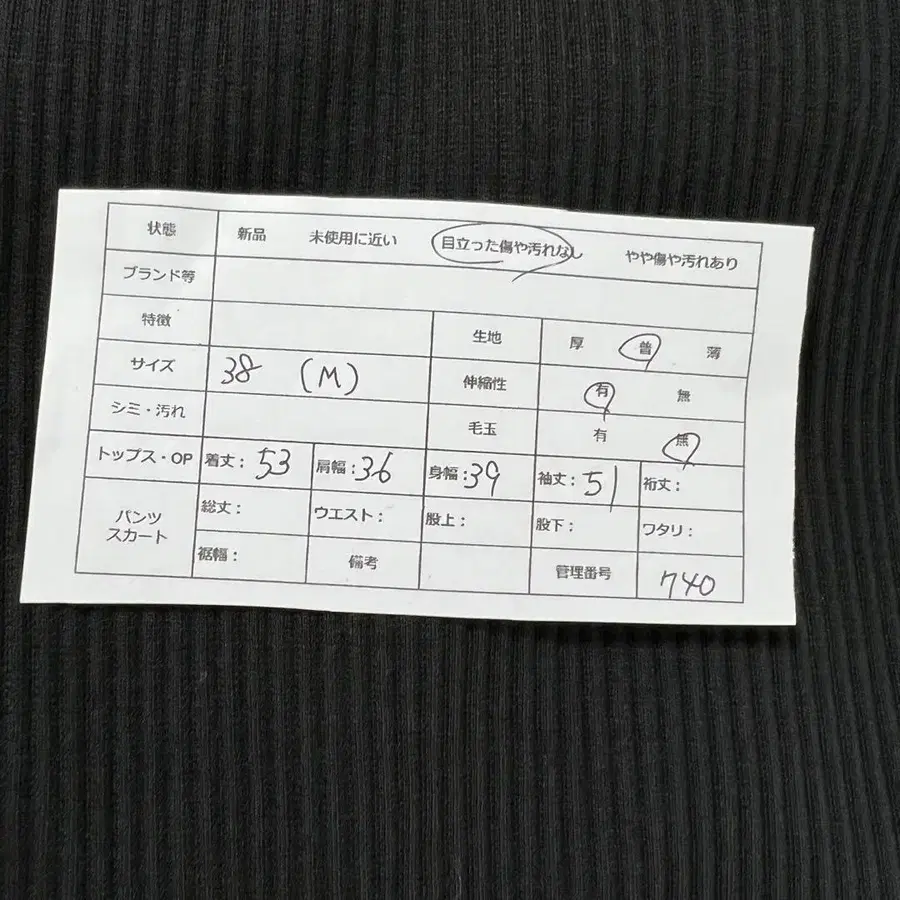 状態 新品 未使用に近い 目立った傷や汚れなし やや傷や汚れあり
ブランド等
特徴 生地 厚 普 薄
サイズ 38 (M) 伸縮性 有 無
シミ・汚れ 毛玉 有 無
トップス・OP 着丈: 53 肩幅: 36 身幅: 39 袖丈: 51 裄丈:
パンツ
スカート
総丈: ウエスト: 股上: 股下: ワタリ:
裾幅: 備考 管理番号 740